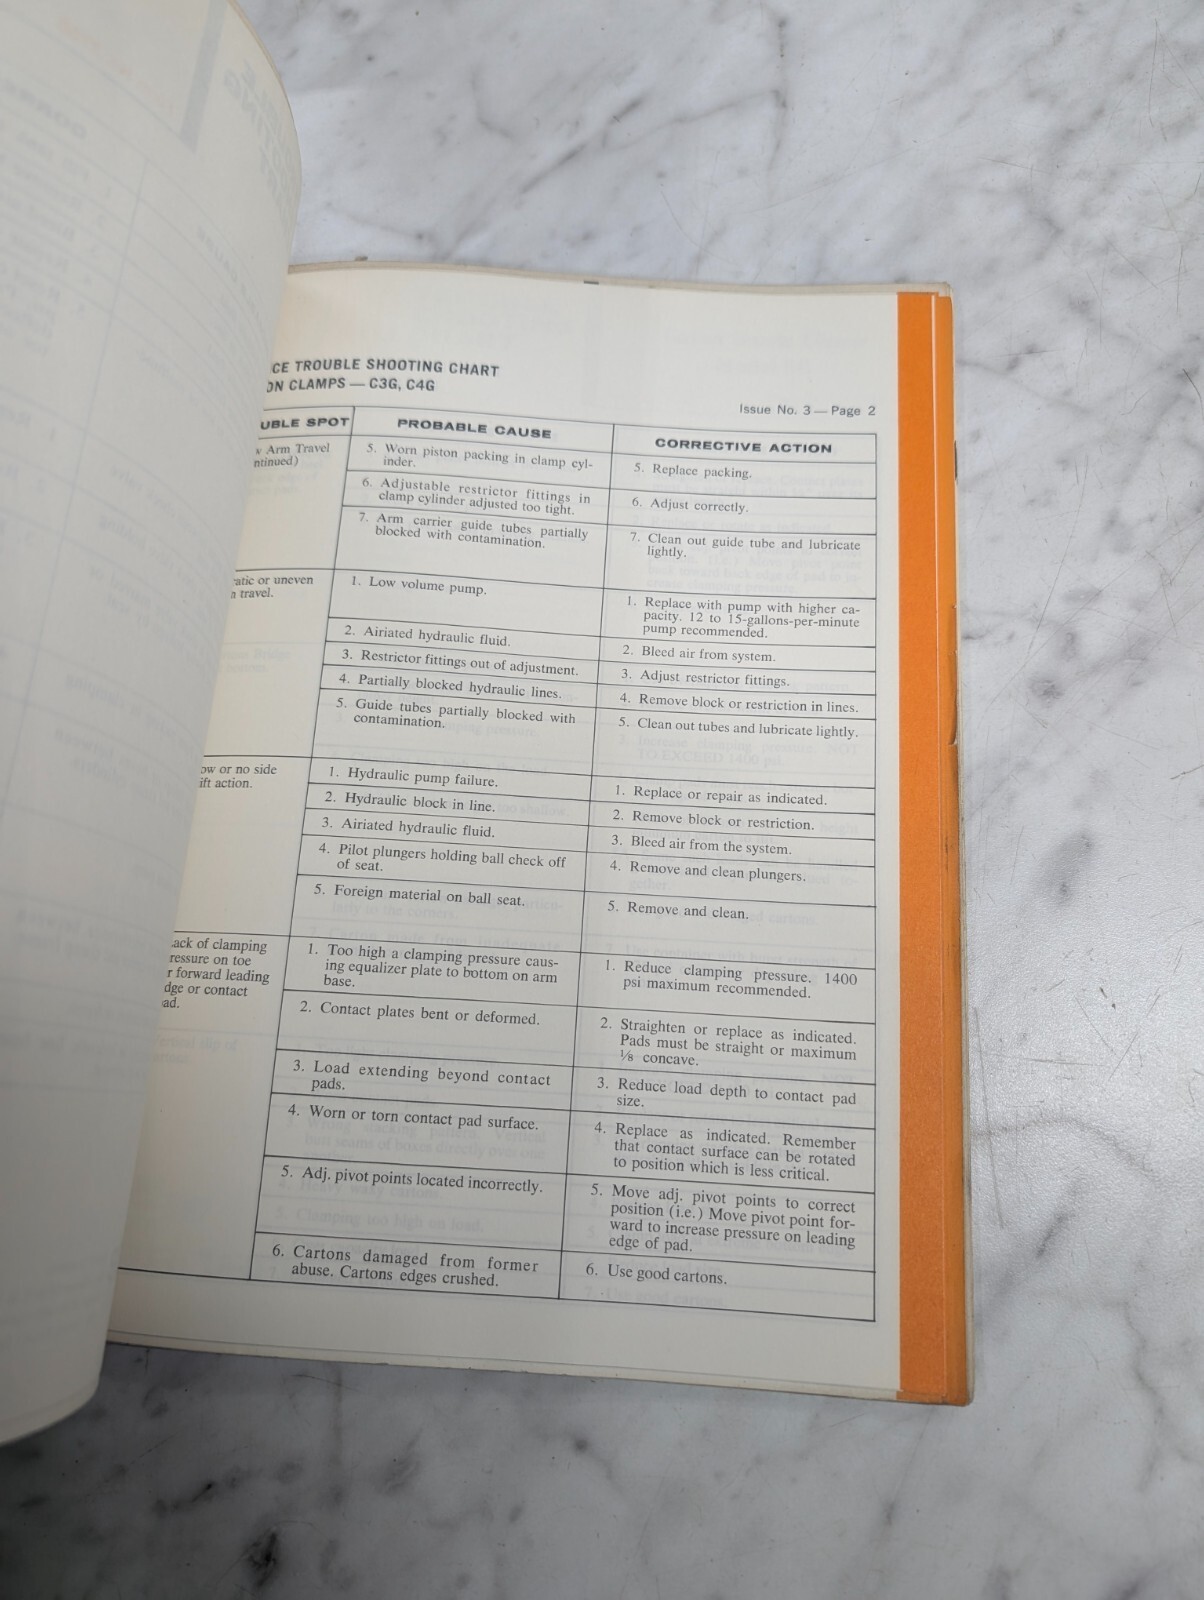 CE TROUBLE SHOOTING CHART
ON CLAMPS — C3G, C4G
Issue No. 3 — Page 2
UBLE SPOT
PROBABLE CAUSE
CORRECTIVE ACTION
w Arm Travel
ntinued)
5. Worn piston packing in clamp cyl-
inder.
5. Replace packing.
6. Adjustable restrictor fittings in
clamp cylinder adjusted too tight.
6. Adjust correctly.
7. Arm carrier guide tubes partially
blocked with contamination.
7. Clean out guide tube and lubricate
lightly.
ratic or uneven
n travel.
1. Low volume pump.
1. Replace with pump with higher ca-
pacity. 12 to 15-gallons-per-minute
pump recommended.
2. Airiated hydraulic fluid.
2. Bleed air from system.
3. Restrictor fittings out of adjustment.
3. Adjust restrictor fittings.
4. Partially blocked hydraulic lines.
4. Remove block or restriction in lines.
5. Guide tubes partially blocked with
contamination.
5. Clean out tubes and lubricate lightly.
ow or no side
ift action.
1. Hydraulic pump failure.
1. Replace or repair as indicated.
2. Hydraulic block in line.
2. Remove block or restriction.
3. Airiated hydraulic fluid.
3. Bleed air from the system.
4. Pilot plungers holding ball check off
of seat.
4. Remove and clean plungers.
5. Foreign material on ball seat.
5. Remove and clean.
ack of clamping
ressure on toe
r forward leading
dge or contact
ad.
1. Too high a clamping pressure caus-
ing equalizer plate to bottom on arm
base.
1. Reduce clamping pressure. 1400
psi maximum recommended.
2. Contact plates bent or deformed.
2. Straighten or replace as indicated.
Pads must be straight or maximum
⅛ concave.
3. Load extending beyond contact
pads.
3. Reduce load depth to contact pad
size.
4. Worn or torn contact pad surface.
4. Replace as indicated. Remember
that contact surface can be rotated
to position which is less critical.
5. Adj. pivot points located incorrectly.
5. Move adj. pivot points to correct
position (i.e.) Move pivot point for-
ward to increase pressure on leading
edge of pad.
6. Cartons damaged from former
abuse. Cartons edges crushed.
6. Use good cartons.